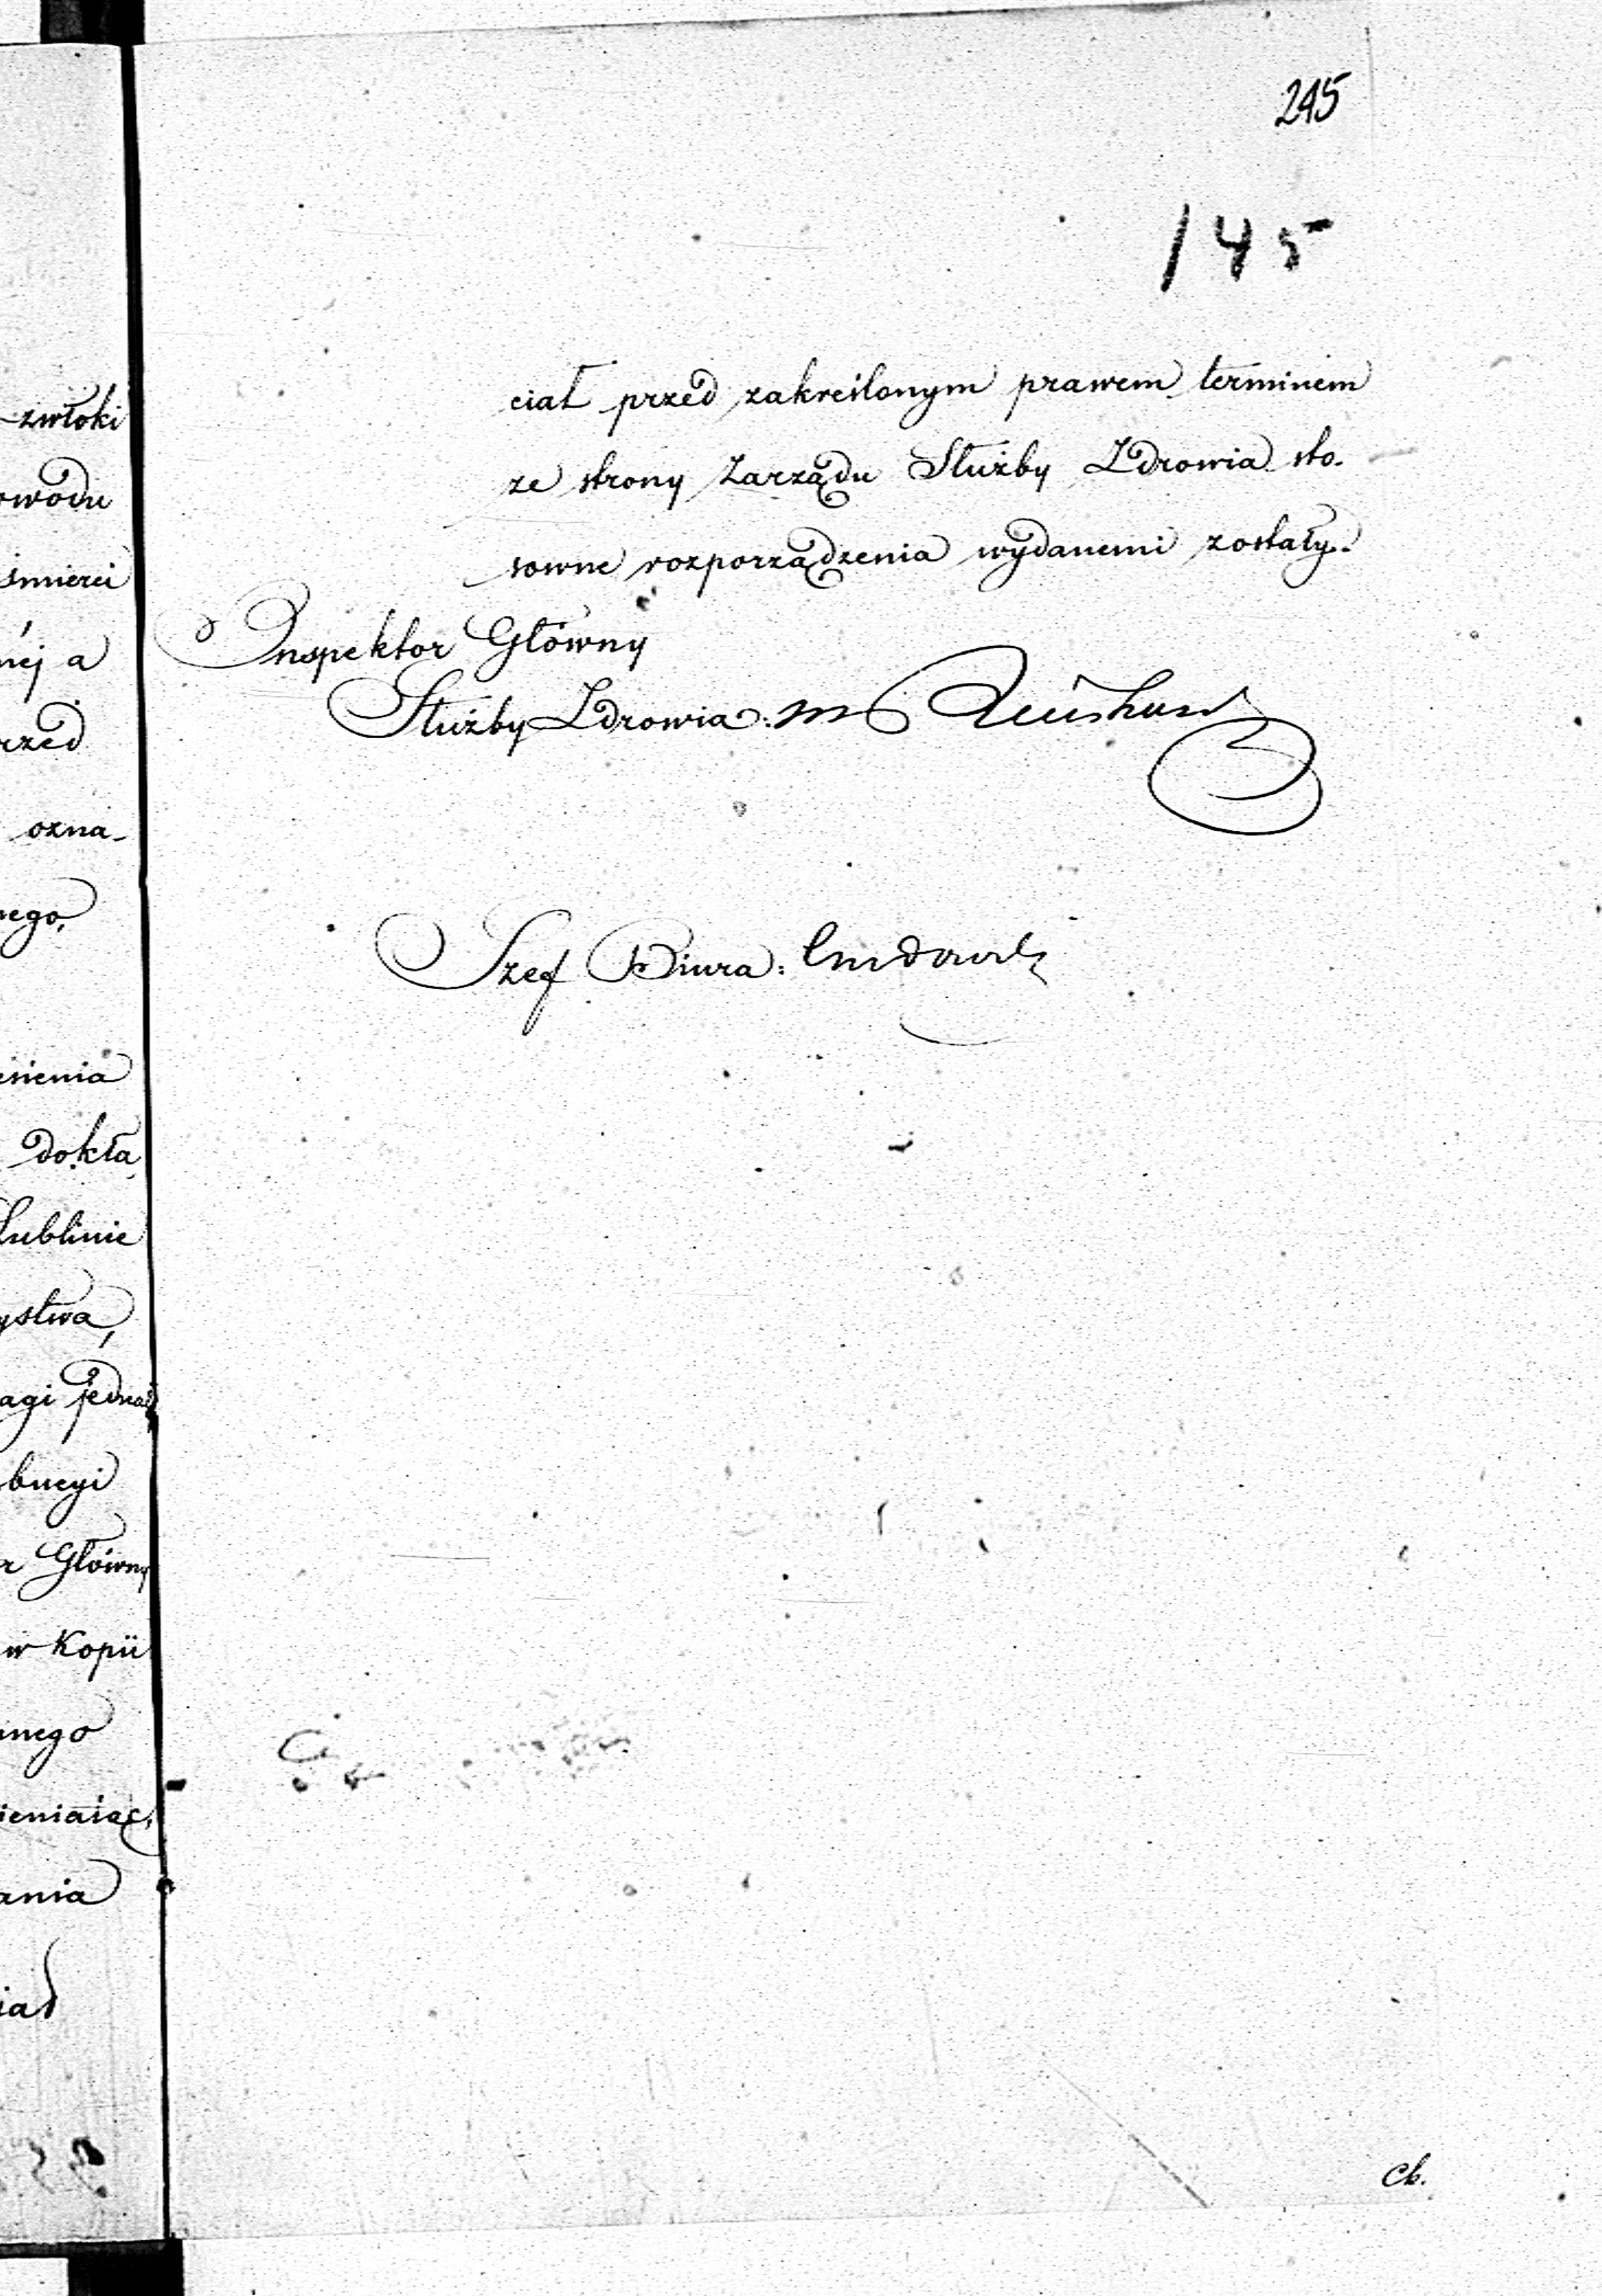 245
145
ciał przed zakreślonym prawem terminem
ze strony Zarządu Służby Zdrowia sto-
sowne rozporządzenia wydanemi zostały.
Inspektor Główny
Służby Zdrowia:
Szef Biura:
Ch.
zwłoki
owodu
śmierci
néj a
rzed
ozna-
nego,
esienia
dokła
Lublinie
ystwa,
agi jedna
bucyi
r Główny
w Kopii
nnego
ieniaiąc,
ania
iał